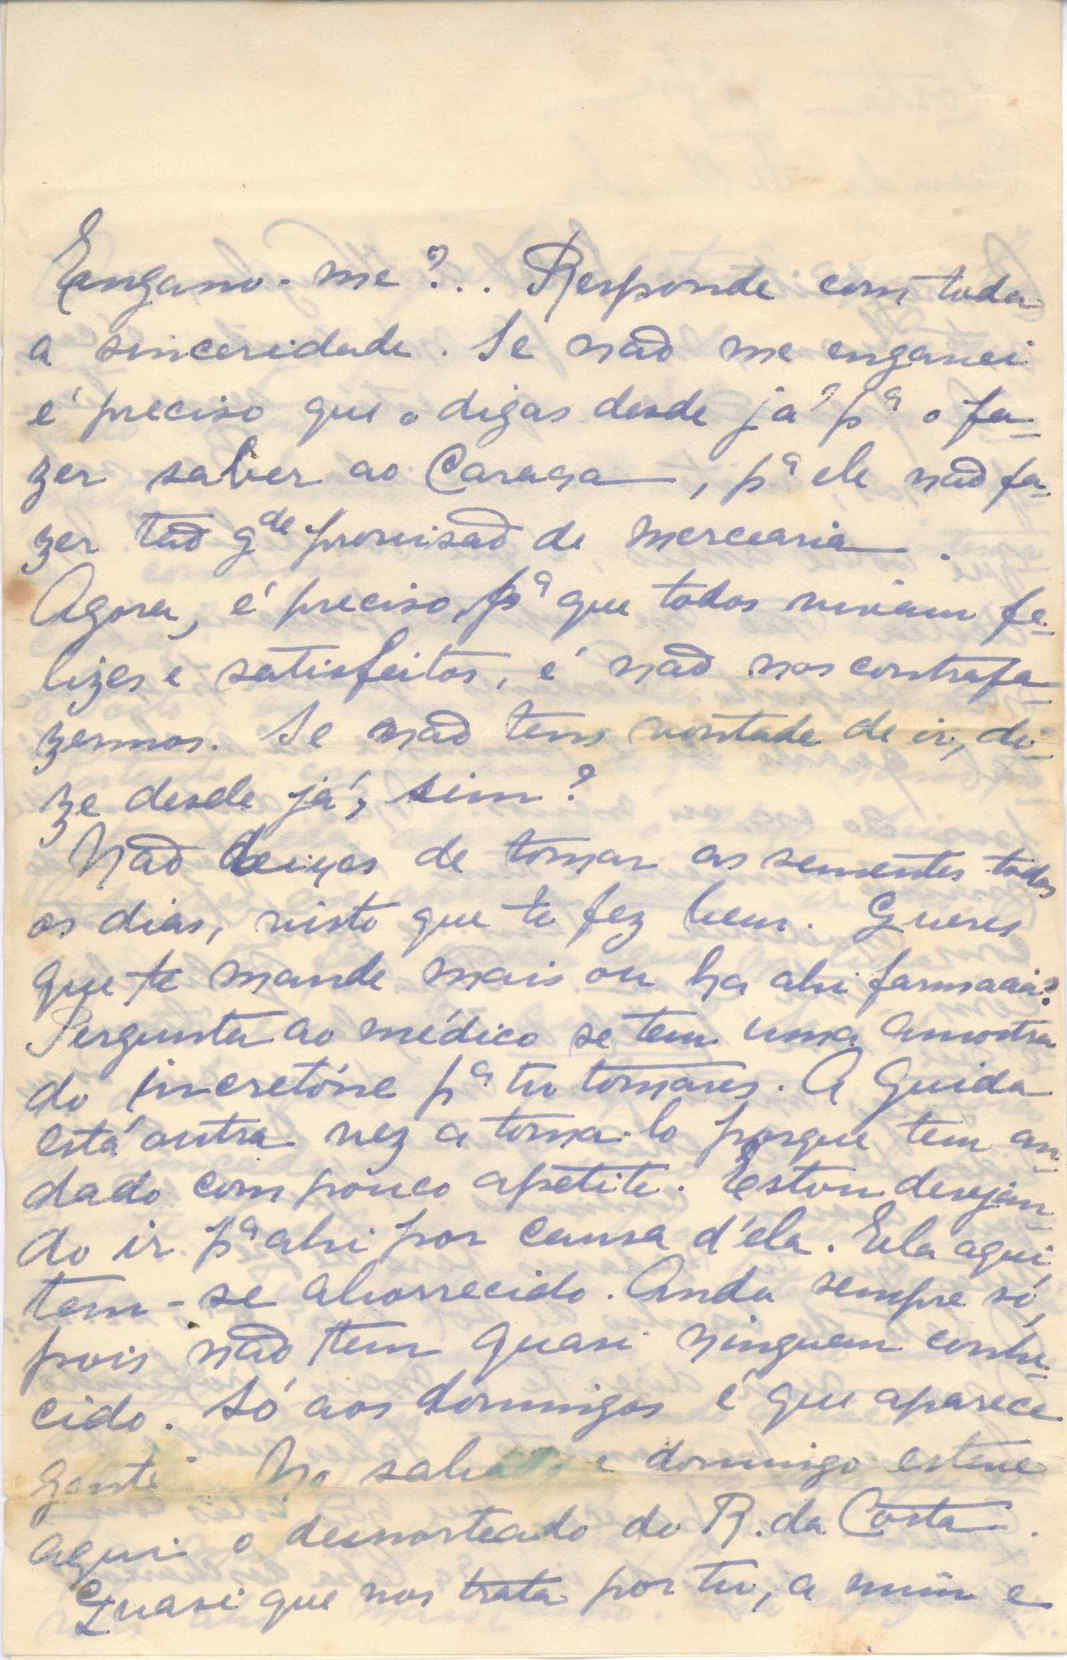 Engano-me?.. Responde com toda
a sinceridade. Se não me enganei
é preciso que o digas desde já pª o fa-
zer saber ao Caraça, pª ele não fa-
zer tão gde provisão de mercearia.
Agora, é preciso, pª que todos vivam fe-
lizes e satisfeitos, é não nos contrafa-
zermos. Se não tens vontade de ir, di-
ze desde já, sim?
Não deixes de tomar as sementes todos
os dias, visto que te fez bem. Queres
que te mande mais ou ha ahi farmacia?
Pergunta ao médico se tem uma amostra
do pª tu tomares. A Guida
está outra vez a toma-lo porque tem an-
dado com pouco apetite. Estou desejan-
do ir pª ahi por causa d'ela. Ela aqui,
tem-se aborrecido. Anda sempre só,
pois não tem quasi ninguem conhe-
cido. Só aos domingos é que aparece
gente. No sabado e domingo esteve
aqui o desnorteado do R. da Costa.
Quasi que nos trata por tu, a mim e